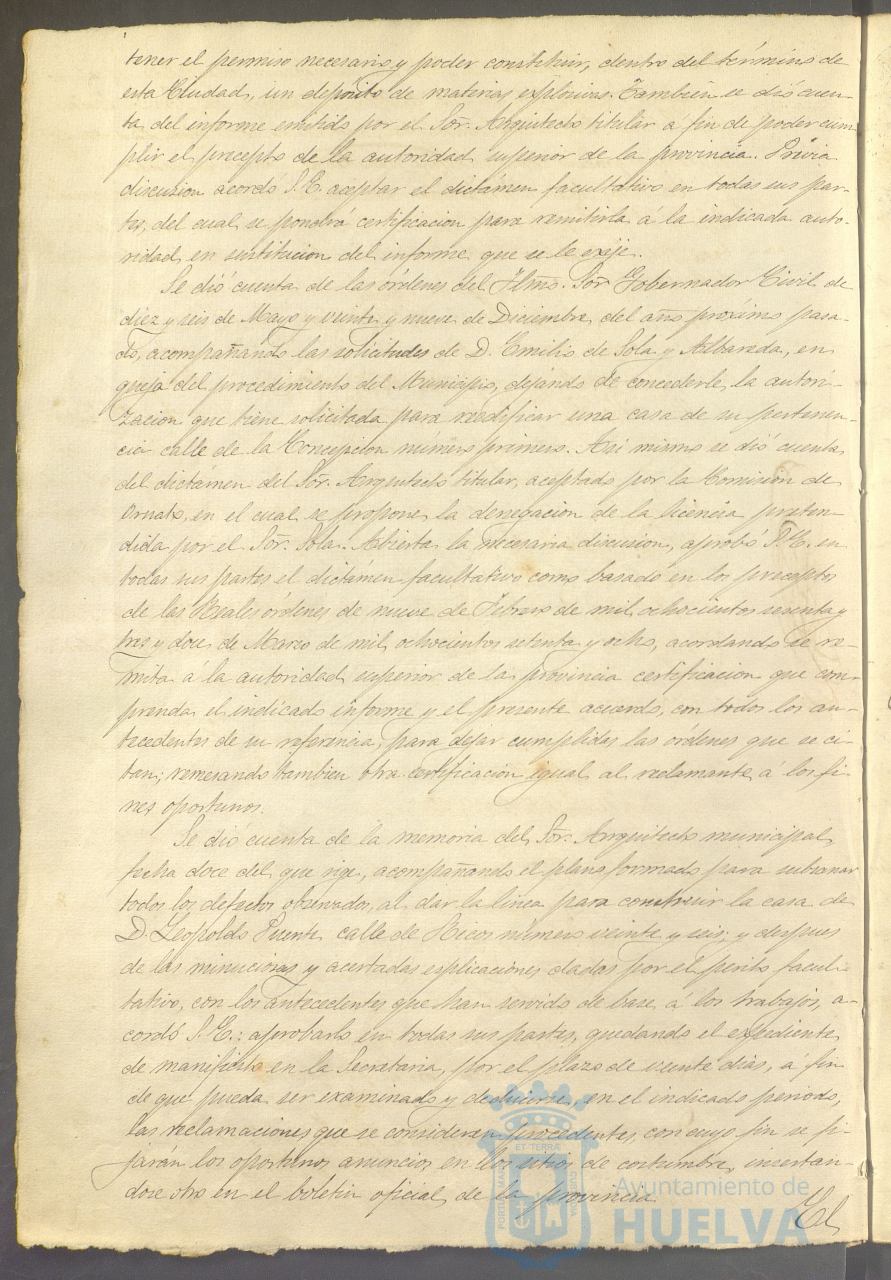 tener el permiso necesario y poder constituir, dentro del término de
esta Ciudad, un depósito de materias explosivas. También se dió cuen-
ta del informe emitido por el Sor. Arquitecto titular a fin de poder cum
plir el precepto de la autoridad superior de la provincia. Prévia
discusion acordó S. E. aceptar el dictámen facultativo en todas sus par-
tes, del cual se pondrá certificacion para remitirla á la indicada auto-
ridad, en sustitucion del informe que se le exije.
Se dió cuenta de las órdenes del Iltmo. Sor. Gobernador Civil de
diez y seis de Mayo y veinte y nueve de Diciembre del año próximo pasa-
do, acompañando las solicitudes de D. Emilio de Sola y Albareda, en
queja del procedimiento del Municipio, dejando de concederle, la autori-
zacion que tiene solicitada para reedificar una casa de su pertenen-
cia calle de la Concepcion número primero. Asi mismo se dió cuenta
del dictámen del Sor. Arquitecto titular, aceptado por la Comision de
Ornato, en el cual se propone, la denegacion de la licencia preten-
dida por el Sor. Sola. Abierta la necesaria discusion, aprobó S. E. en
todas sus partes el dictámen facultativo como basado en los preceptos
de las Reales órdenes de nueve de Febrero de mil ochocientos sesenta y
tres y doce de Marzo de mil ochocientos setenta y ocho, acordando se re-
mita á la autoridad superior de la provincia certificacion que com-
prenda el indicado informe y el presente acuerdo, con todos los an-
tecedentes de su referencia, para dejar cumplidas las órdenes que se ci-
tan; remesando tambien otra certificacion igual al reclamante á los fi-
nes oportunos.
Se dió cuenta de la memoria del Sor. Arquitecto municipal,
fecha doce del que rige, acompañando el plano formado para subsanar
todos los defectos observados, al dar la línea para construir la casa de
D. Leopoldo Puente calle de Ricos número veinte y seis; y despues
de las minuciosas y acertadas esplicaciones dadas por el perito facul-
tativo, con los antecedentes que han servido de base á los trabajos, a-
cordó S. E.: aprobarlo en todas sus partes, quedando el espediente
de manifiesto en la Secretaria, por el plazo de veinte dias, á fin
de que pueda ser examinado y deducirse, en el indicado periodo,
las reclamaciones que se consideren procedentes, con cuyo fin se fi-
jarán los oportunos anuncios en los sitios de costumbre, insertan-
dose otro en el boletin oficial de la provincia.
El
Ayuntamiento de
HUELVA